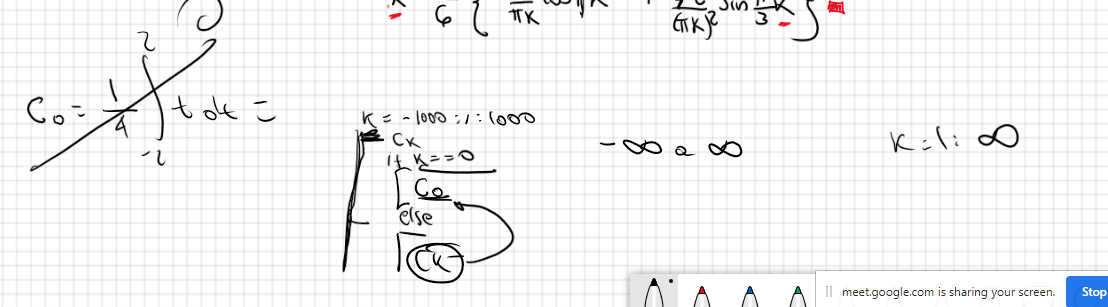 6 { πK (πK)² sin π/3 K }
C₀ = 1/4 ∫ t dt =
2
-2
K = -1000:1:1000
CK
if K==0
C₀
else
CK
-∞ a ∞
K=1: ∞
meet.google.com is sharing your screen.
Stop